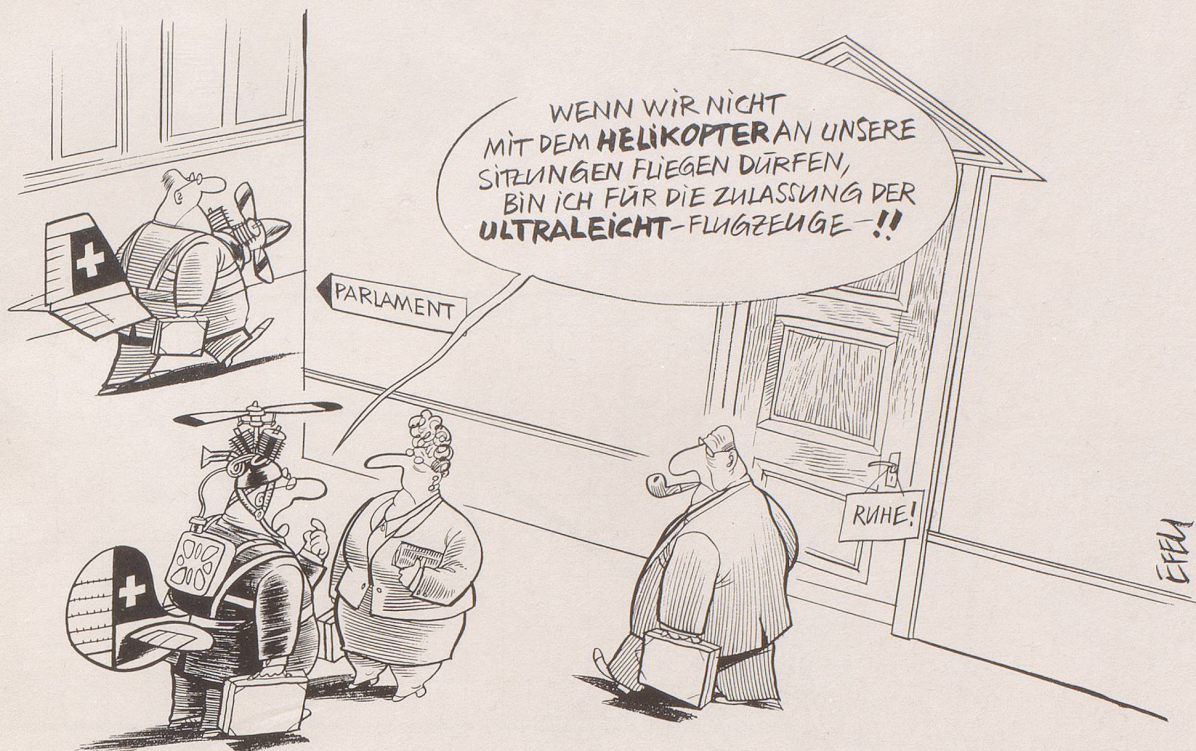 WENN WIR NICHT
MIT DEM HELIKOPTER AN UNSERE
SITZUNGEN FLIEGEN DÜRFEN,
BIN ICH FÜR DIE ZULASSUNG DER
ULTRALEICHT-FLUGZEUGE–!!
PARLAMENT
RUHE!
EFEU